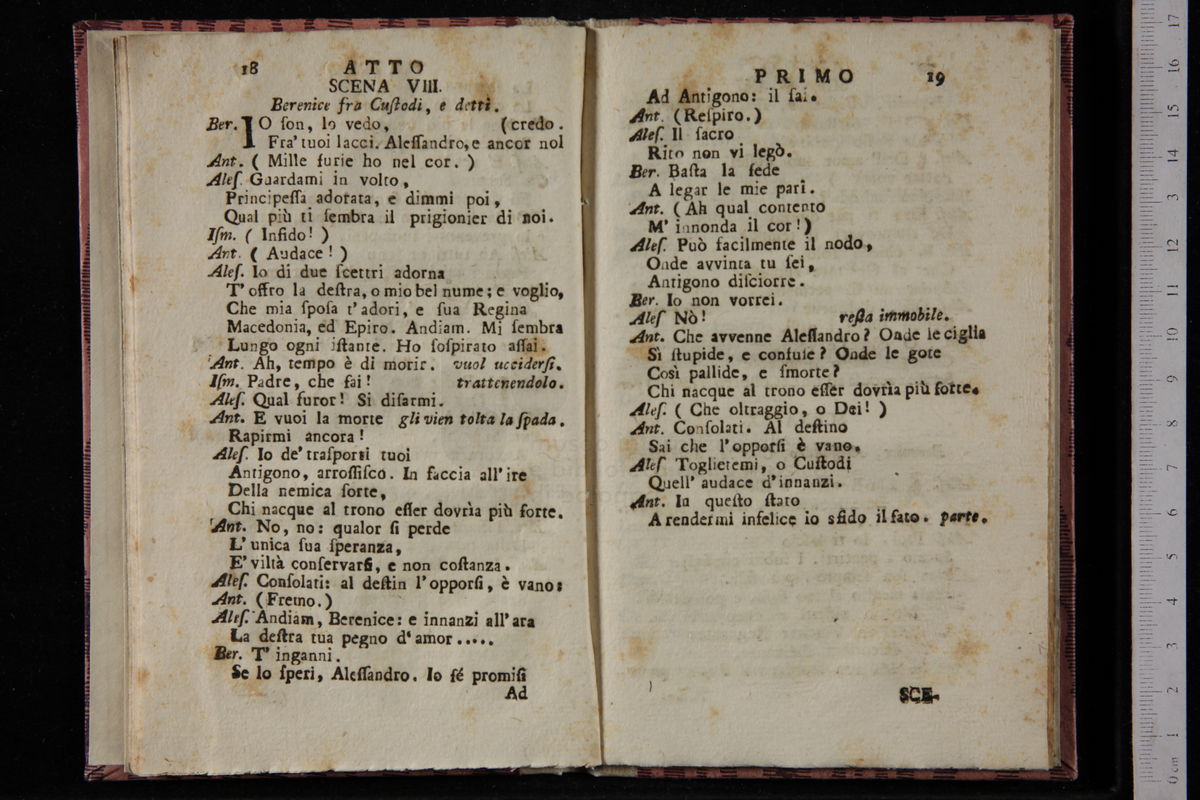 18 ATTO
SCENA VIII.
Berenice fra Cuſtodi, e detti.
Ber. IO ſon, lo vedo, (credo.
Fra' tuoi lacci. Aleſſandro, e ancor nol
Ant. ( Mille furie ho nel cor. )
Aleſ. Guardami in volto,
Principeſſa adorata, e dimmi poi,
Qual più ti ſembra il prigionier di noi.
Iſm. ( Infido! )
Ant. ( Audace! )
Aleſ. Io di due ſcettri adorna
T' offro la deſtra, o mio bel nume; e voglio,
Che mia ſpoſa t' adori, e ſua Regina
Macedonia, ed Epiro. Andiam. Mi ſembra
Lungo ogni iſtante. Ho ſoſpirato aſſai.
Ant. Ah, tempo è di morir. vuol ucciderſi.
Iſm. Padre, che fai! trattenendolo.
Aleſ. Qual furor! Si diſarmi.
Ant. E vuoi la morte gli vien tolta la ſpada.
Rapirmi ancora!
Aleſ. Io de' traſporti tuoi
Antigono, arroſſiſco. In faccia all' ire
Della nemica ſorte,
Chi nacque al trono eſſer dovrìa più forte.
Ant. No, no: qualor ſi perde
L' unica ſua ſperanza,
E' viltà conſervarſi, e non coſtanza.
Aleſ. Conſolati: al deſtin l' opporſi, è vano:
Ant. (Fremo.)
Aleſ. Andiam, Berenice: e innanzi all' ara
La deſtra tua pegno d' amor.....
Ber. T' inganni.
Se lo ſperi, Aleſſandro. Io fé promiſi
Ad
PRIMO 19
Ad Antigono: il ſai.
Ant. (Reſpiro.)
Aleſ. Il ſacro
Rito non vi legò.
Ber. Baſta la fede
A legar le mie pari.
Ant. (Ah qual contento
M' innonda il cor!)
Aleſ. Può facilmente il nodo,
Onde avvinta tu ſei,
Antigono diſciorre.
Ber. Io non vorrei.
Aleſ Nò! reſta immobile.
Ant. Che avvenne Aleſſandro? Onde le ciglia
Sì ſtupide, e confuſe? Onde le gote
Così pallide, e ſmorte?
Chi nacque al trono eſſer dovrìa più forte.
Aleſ. ( Che oltraggio, o Dei! )
Ant. Conſolati. Al deſtino
Sai che l' opporſi è vano.
Aleſ Toglietemi, o Cuſtodi
Quell' audace d' innanzi.
Ant. In queſto ſtato
A rendermi infelice io sfido il fato. parte.
SCE-